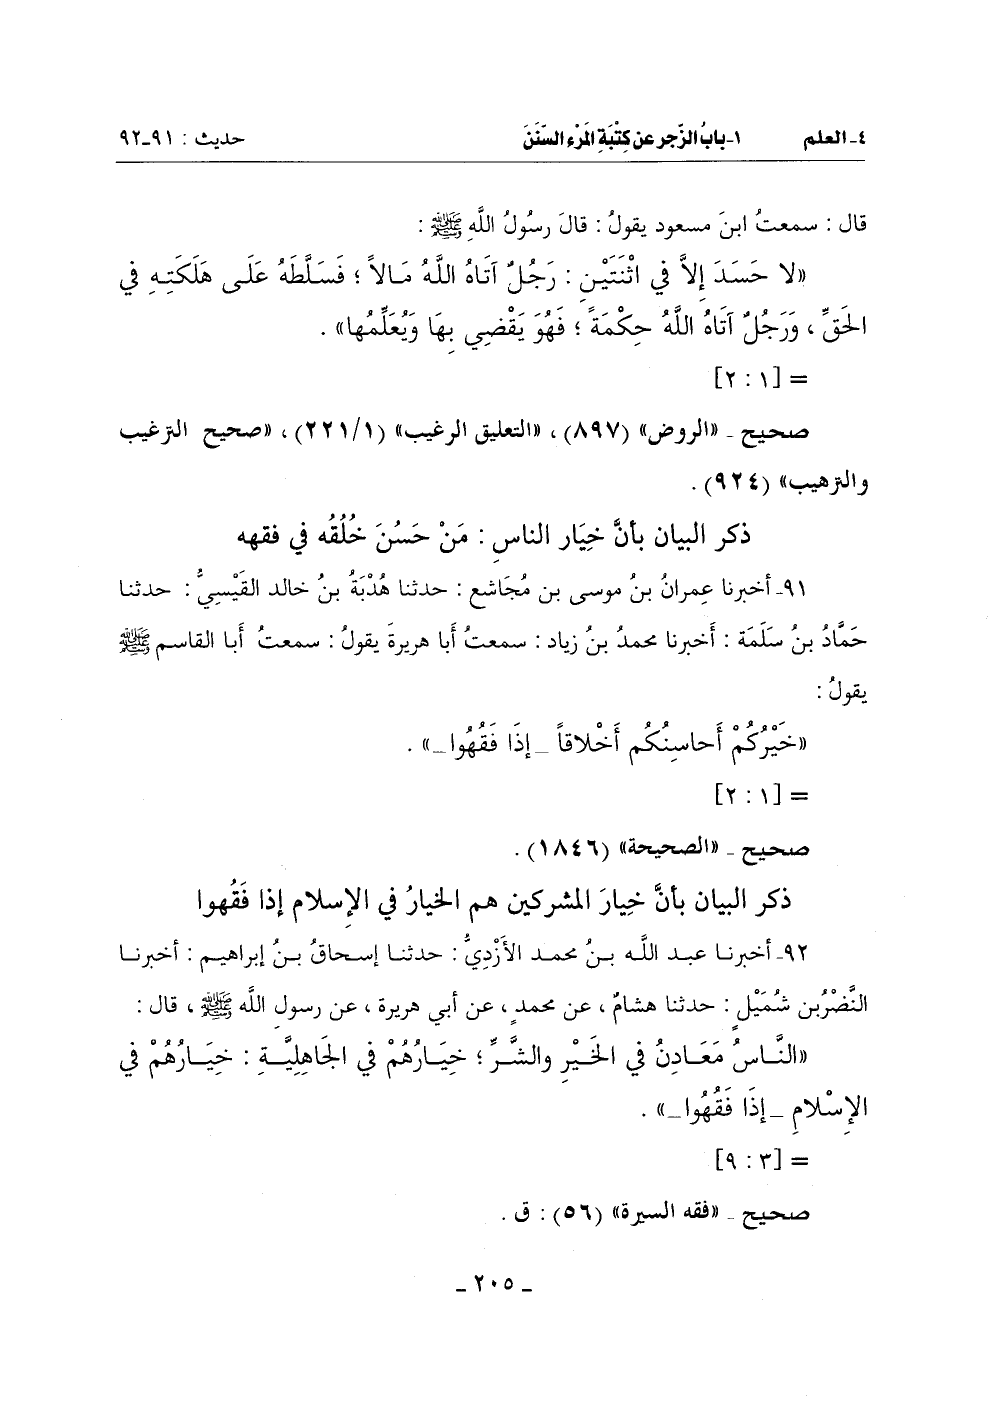 ٤ـ العلم ١ـ بابُ الزَّجر عن كِتْبَةِ المَرْءِ السُّنَنَ حديث : ٩١ـ٩٢
قال : سمعتُ ابنَ مسعود يقولُ : قالَ رسُولُ اللَّهِ ﷺ :
«لا حَسَدَ إلاَّ في اثْنَتَيْنِ : رَجُلٌ آتَاهُ اللَّهُ مَالاً ؛ فَسَلَّطَهُ عَلَى هَلَكَتِهِ في
الحَقِّ ، وَرَجُلٌ آتَاهُ اللَّهُ حِكْمَةً ؛ فَهُوَ يَقْضِي بِهَا وَيُعَلِّمُها» .
= [١ : ٢]
صحيح ـ «الروض» (٨٩٧) ، «التعليق الرغيب» (١/ ٢٢١) ، «صحيح الترغيب
والترهيب» (٩٢٤) .
ذكر البيان بأنَّ خِيَار الناسِ : مَنْ حَسُنَ خُلُقُه في فقهه
٩١ـ أخبرنا عِمرانُ بنُ موسى بن مُجَاشع : حدثنا هُدْبَةُ بنُ خالد القَيْسِيُّ : حدثنا
حَمَّادُ بنُ سَلَمَة : أخبرنا محمدُ بنُ زياد : سمعتُ أبا هريرةَ يقولُ : سمعتُ أبا القاسم ﷺ
يقولُ :
«خَيْرُكُمْ أحاسِنُكُم أَخْلاقاً ـ إذَا فَقُهُوا ـ» .
= [١ : ٢]
صحيح ـ «الصحيحة» (١٨٤٦) .
ذكر البيان بأنَّ خِيارَ المشركين هم الخيارُ في الإسلام إذا فَقُهوا
٩٢ـ أخبرنا عبد اللَّه بنُ محمد الأَزْدِيُّ : حدثنا إسحاقُ بنُ إبراهيم : أخبرنا
النَّضْرُ بن شُمَيْلٍ : حدثنا هشامٌ ، عن محمدٍ ، عن أبي هريرة ، عن رسول اللَّه ﷺ ، قال :
«النَّاسُ مَعَادِنُ في الخَيْرِ والشَّرِّ ؛ خِيَارُهُمْ في الجَاهِلِيَّةِ : خِيَارُهُمْ في
الإِسْلامِ ـ إذَا فَقُهُوا ـ» .
= [٣ : ٩]
صحيح ـ «فقه السيرة» (٥٦) : ق .
ـ ٢٠٥ ـ